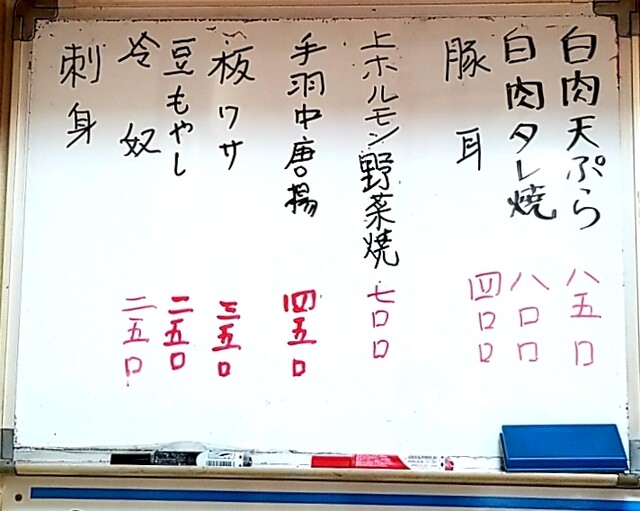 白肉天ぷら 八五〇
白肉タレ焼 八〇〇
豚耳 四〇〇
上ホルモン野菜焼 七〇〇
手羽中唐揚 四五〇
板ワサ 三五〇
豆もやし 二五〇
冷奴 二五〇
刺身